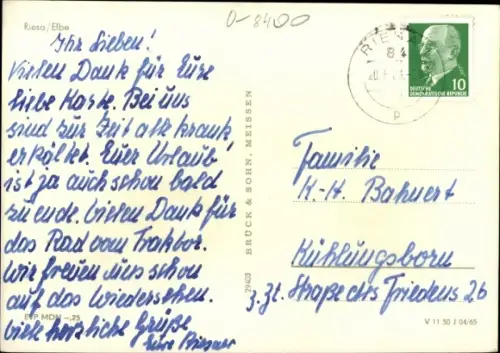 D-8400
Riesa/Elbe
Ihr Lieben!
Vielen Dank für Eure
liebe Karte. Bei uns
sind zur Zeit alle krank,
erkältet. Euer Urlaub
ist ja auch schon bald
zu ende. Vielen Dank für
das Rad vom Traktor.
Wir freuen uns schon
auf das Wiedersehen.
Viele herzliche Grüße
Eure Riesaer
EVP MDN -,25
29403 BRÜCK & SOHN, MEISSEN
RIESA
84
p
10
DEUTSCHE
DEMOKRATISCHE REPUBLIK
Familie
K.-H. Bahnert
Kühlungsborn
z.Zt. Straße des Friedens 26
V 11 50 J 04/65